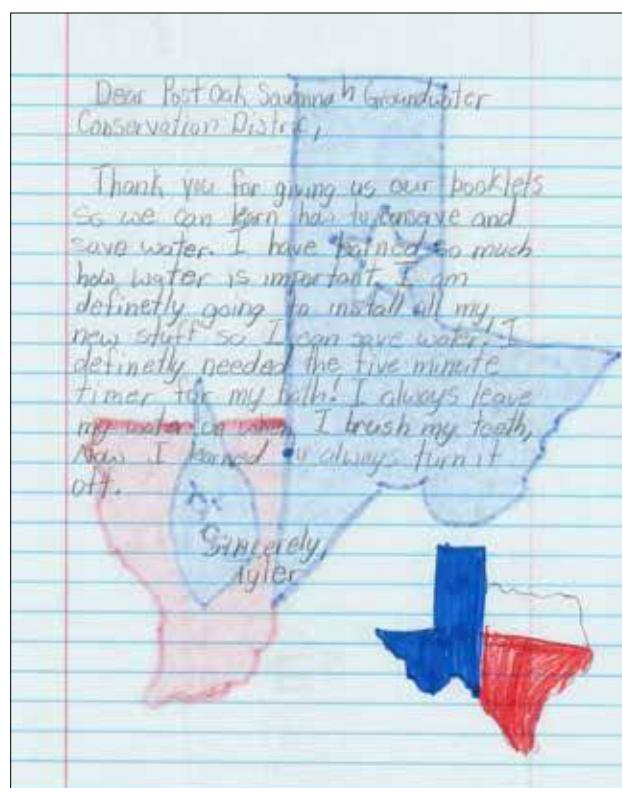 Dear Post Oak Savannah Groundwater
Conservation Distric,
Thank you for giving us our booklets
so we can learn how to conserve and
save water. I have learned so much
how water is important. I am
definetly going to install all my
new stuff so I can save water! I
definetly needed the five minute
timer for my bath! I always leave
my water on when I brush my teeth,
Now I learned u always turn it
off.
Sincerely,
Tyler